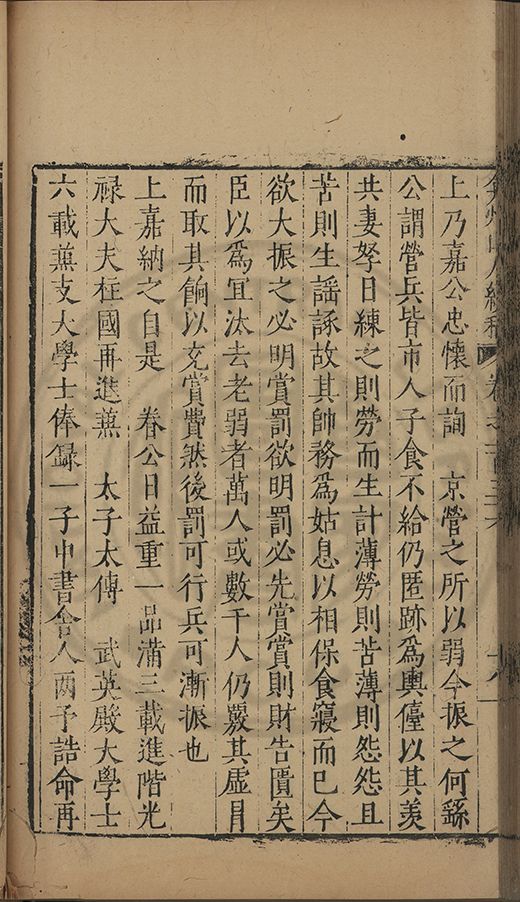 弇州山人續稿 卷之一百三六 十八
上乃嘉公忠懷而詢　京營之所以弱今振之何繇
公謂營兵皆市人子食不給仍匿跡爲輿儓以其羨
共妻孥日練之則勞而生計薄勞則苦薄則怨怨且
苦則生謡諑故其帥務爲姑息以相保食寢而已今
欲大振之必明賞罰欲明罰必先賞賞則財告匱矣
臣以爲宜汰去老弱者萬人或數千人仍覈其虛冒
而取其餉以充賞費然後罰可行兵可漸振也
上嘉納之自是　眷公日益重一品滿三載進階光
禄大夫柱國再進兼　太子太傅　武英殿大學士
六載兼支大學士俸録一子中書舍人兩予誥命再